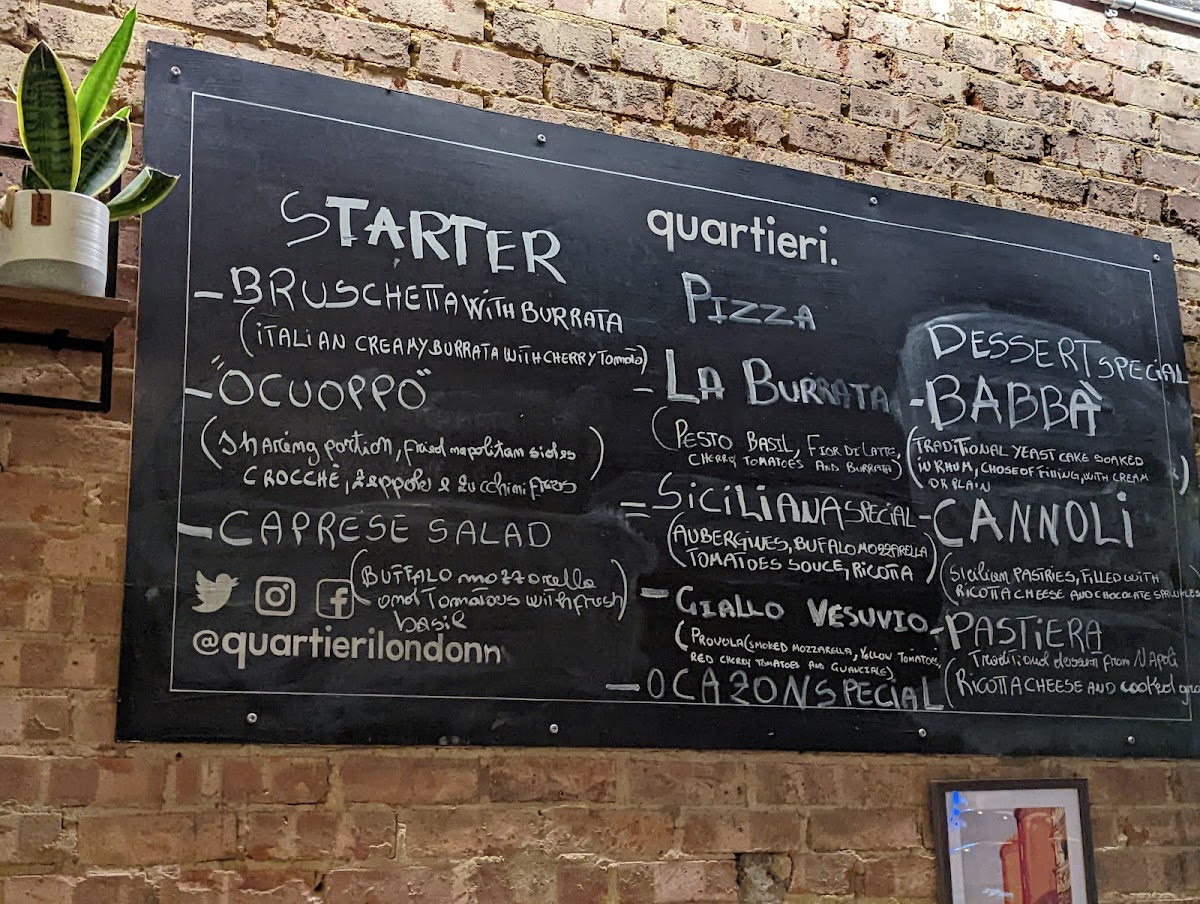 STARTER
- BRUSCHETTA WITH BURRATA
(ITALIAN CREAMY BURRATA WITH CHERRY TOMATO)
- "OCUOPPO"
(Sharing portion, fried napolitan sides
CROCCHÈ, zeppole e zucchini fries)
- CAPRESE SALAD
(BUFFALO mozzorella
and Tomatous with fresh
basil)
@quartierilondonn
quartieri.
PIZZA
- LA BURRATA
(PESTO BASIL, FIOR DI LATTE,
CHERRY TOMATOES AND BURRATA)
- SICILIANA SPECIAL
(AUBERGINES, BUFALO MOZZARELLA
TOMATOES SOUCE, RICOTTA)
- GIALLO VESUVIO
(PROVOLA (SMOKED MOZZARELLA, YELLOW TOMATOES,
RED CHERRY TOMATOES AND GUANCIALE)
- OCAZONSPECIAL
DESSERT SPECIAL
- BABBÀ
(TRADITIONAL YEAST CAKE SOAKED
IN RHUM, CHOSE OF FILLING, WITH CREAM
OR PLAIN)
- CANNOLI
(Sicilian PASTRIES, FILLED WITH
RICOTTA CHEESE AND CHOCOLATE
- PASTIERA
Traditional dessert from NAPOLI
(RICOTTA CHEESE AND cooked